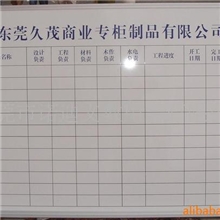 东莞久茂商业专柜制品有限公司
名称 设计负责 工程负责 材料负责 木作负责 水电负责 工程进度 开工日期 完工日期
alibaba